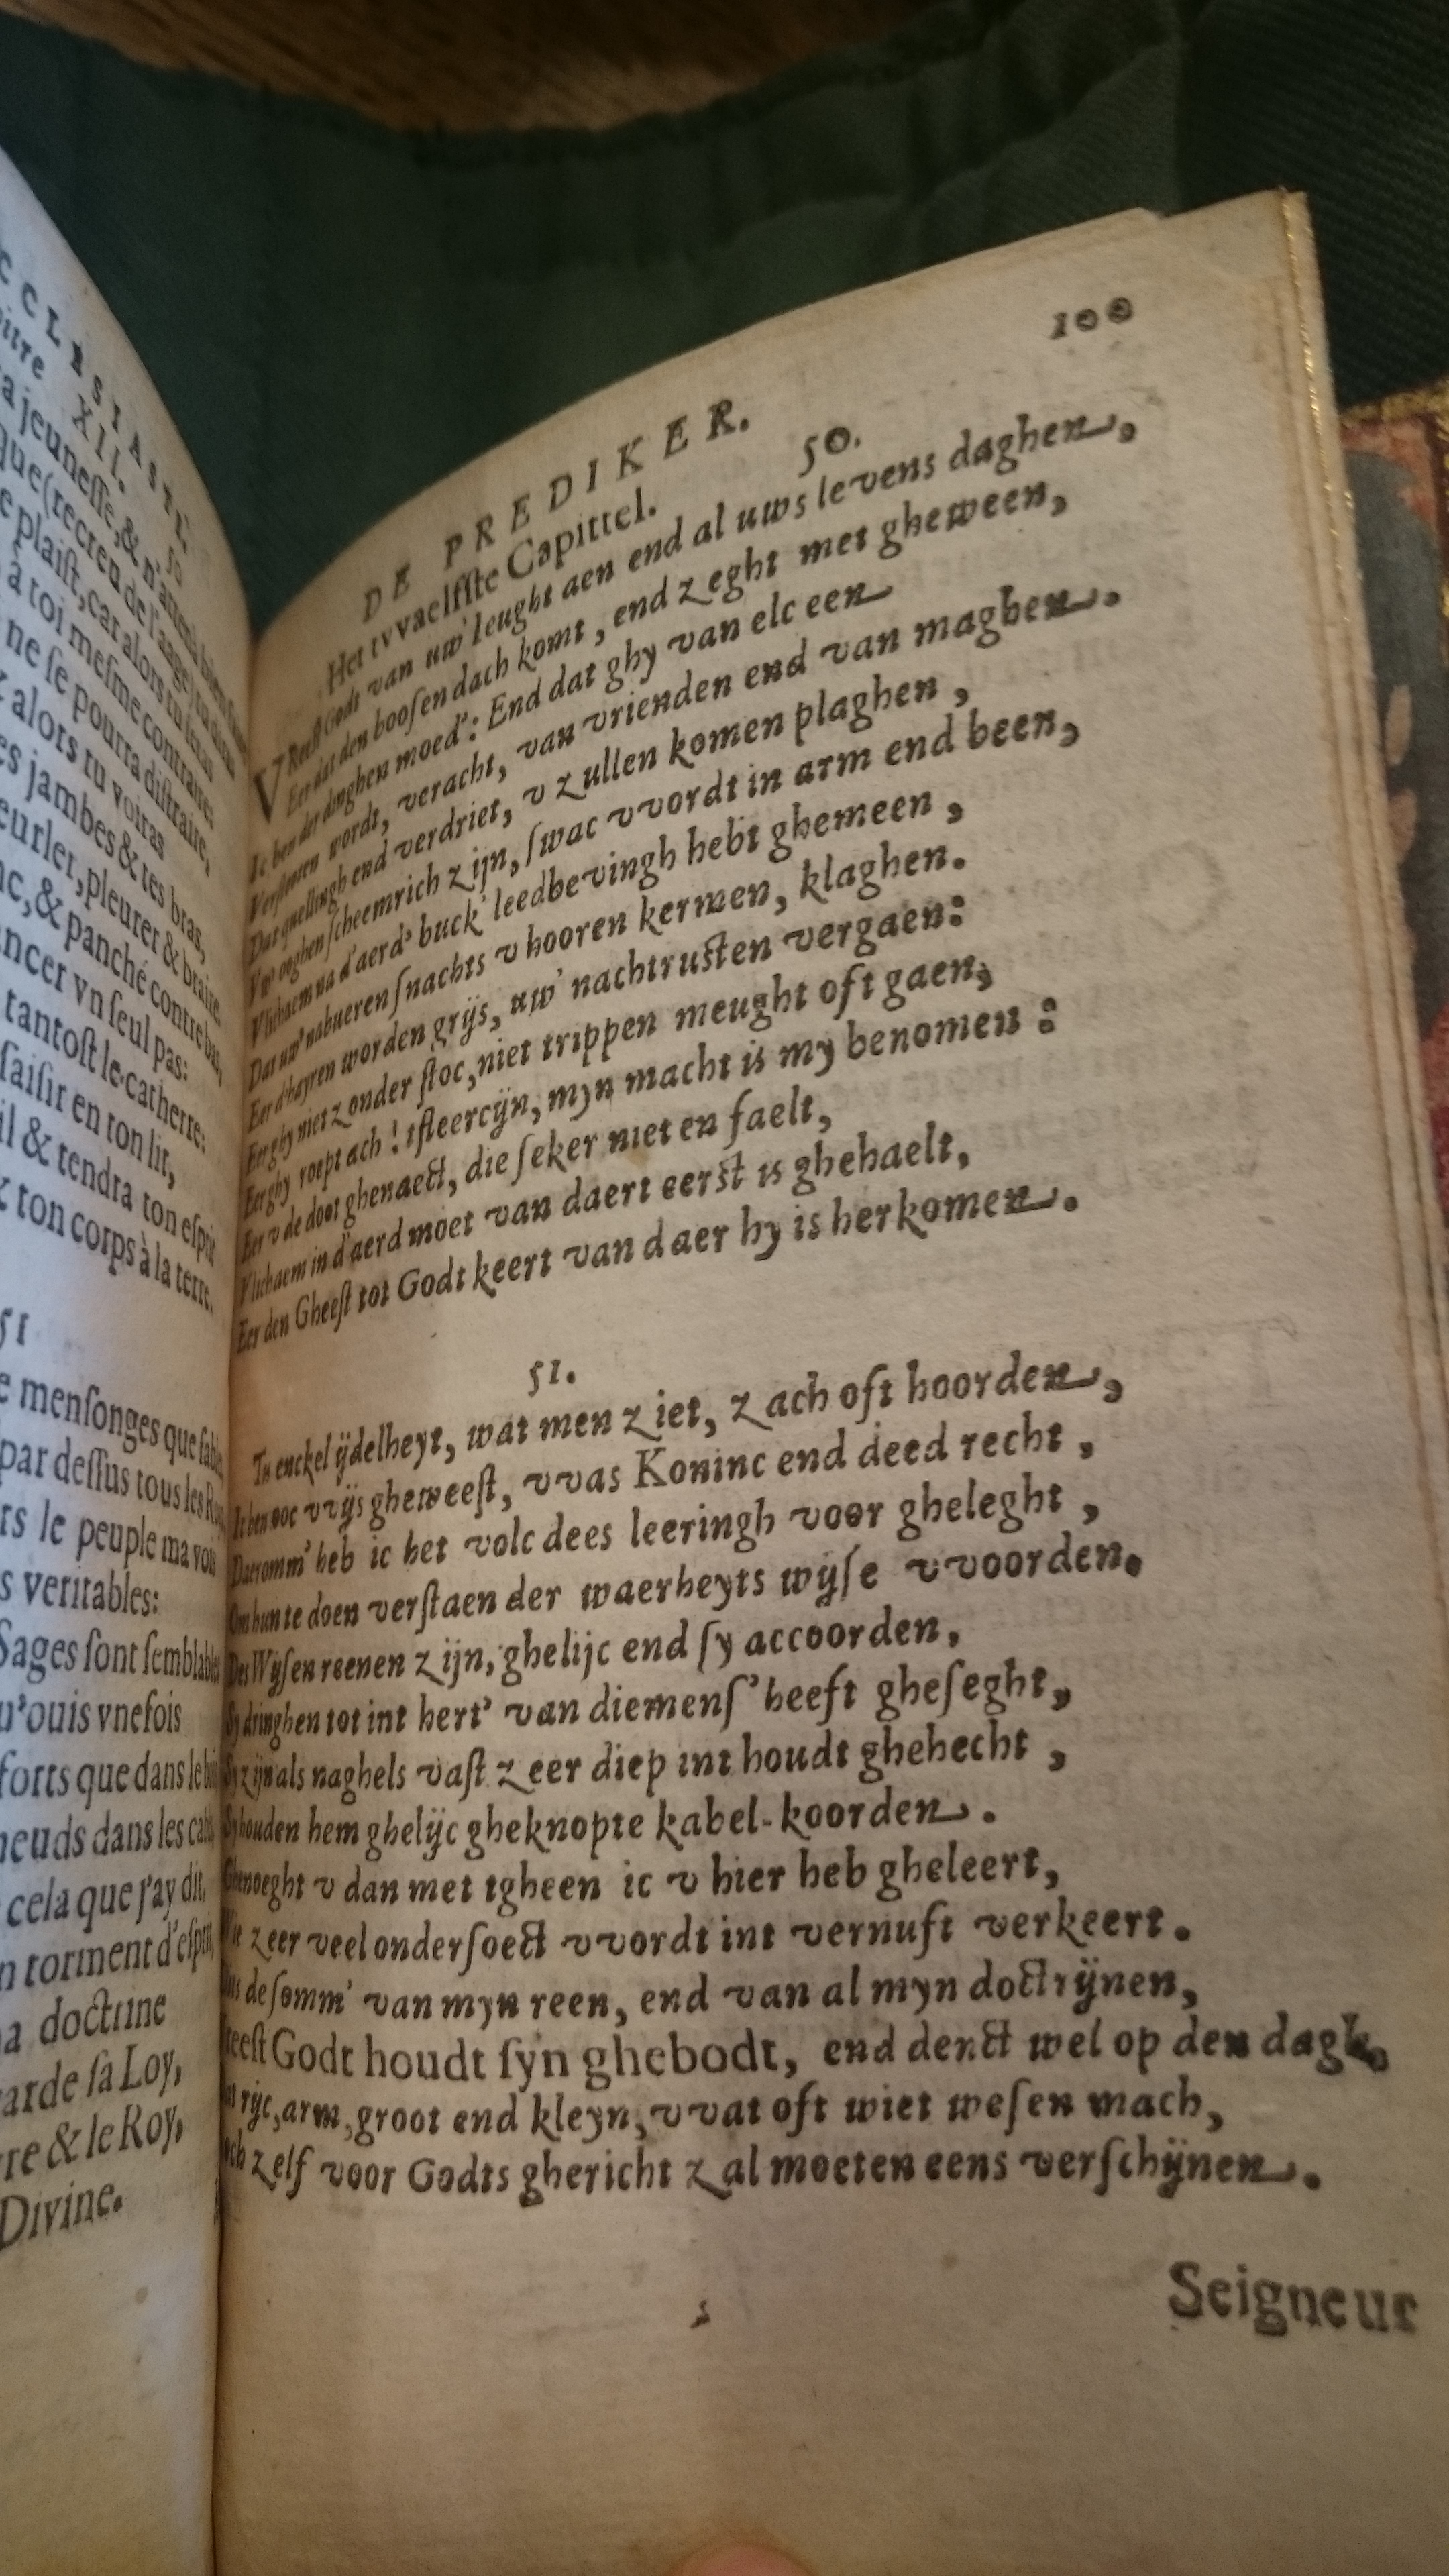 CCLESIASTE,
itre XII. 50
a jeunesse, & n'atten
que (recreu de l'aage) tu
e plaist, car alors tu
à toi mesme contraire:
ne se pourra distraire,
alors tu voiras
es jambes & tes bras,
eurler, pleurer & braire.
c, & panché contre bas,
ncer vn seul pas:
tantost le catherre:
saisir en ton lit,
il & tendra ton esprit
ton corps à la terre.
51
e mensonges que
par dessus tous les
rs le peuple ma
s veritables:
Sages sont
u'ouis vnefois
forts que dans le
euds dans les
cela que j'ay dit,
n torment d'esprit,
a doctrine
arde sa Loy,
re & le Roy,
Divine.
100
DE PREDIKER.
Het tvvaelfste Capittel. 50.
VReest Godt van uw' Ieught aen end al uws levens daghen,
Eer dat den boosen dach komt, end zeght met gheween,
Ic ben der dinghen moed': End dat ghy van elc een
Versmeten wordt, veracht, van vrienden end van maghen.
Dat quellingh end verdriet, v zullen komen plaghen,
Uw' ooghen scheemrich zijn, swac vvordt in arm end been,
Vlichaem na d'aerd' buck' leedbevingh hebt ghemeen,
Dat uw' nabueren snachts v hooren kermen, klaghen.
Eer d'hayren worden grijs, uw' nachtrusten vergaen:
Eer ghy niet zonder stoc, niet trippen meught oft gaen,
Eer ghy roept ach! tfleercijn, myn macht is my benomen:
Eer v de doot ghenaect, die seker niet en faelt,
Vlichaem in d'aerd moet van daert eerst is ghehaelt,
Eer den Gheest tot Godt keert van daer hy is herkomen.
51.
Tis enckel ijdelheyt, wat men ziet, zach oft hoorden,
Ic ben ooc vvijs gheweest, vvas Koninc end deed recht,
Daeromm' heb ic het volc dees leeringh voor gheleght,
Om hun te doen verstaen der waerheyts wijse vvoorden.
Des Wijsen reenen zijn, ghelijc end sy accoorden,
Sy dringhen tot int hert' van diemens' heeft gheseght,
Sy zijn als naghels vast zeer diep int houdt ghehecht,
Sy houden hem ghelijc gheknopte kabel-koorden.
Ghenoeght v dan met tgheen ic v hier heb gheleert,
zeer veel ondersoect vvordt int vernuft verkeert.
de somm' van myn reen, end van al myn doctrijnen,
reest Godt houdt syn ghebodt, end denct wel op den dagh,
rijc, arm, groot end kleyn, vvat oft wiet wesen mach,
zelf voor Godts ghericht zal moeten eens verschijnen.
Seigneur